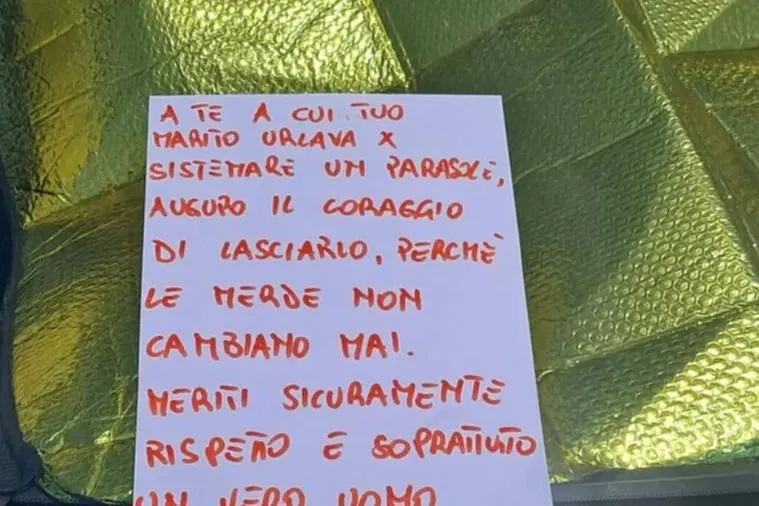 A TE A CUI TUO
MARITO URLAVA X
SISTEMARE UN PARASOLE,
AUGURO IL CORAGGIO
DI LASCIARLO, PERCHÈ
LE MERDE NON
CAMBIANO MAI.
MERITI SICURAMENTE
RISPETTO E SOPRATTUTTO
UN VERO UOMO